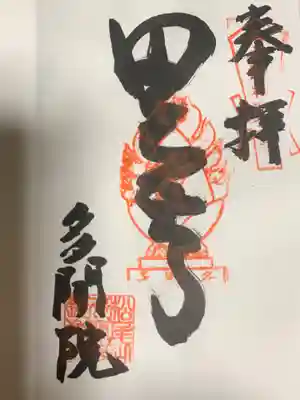 奉拝
毘沙門
多聞院